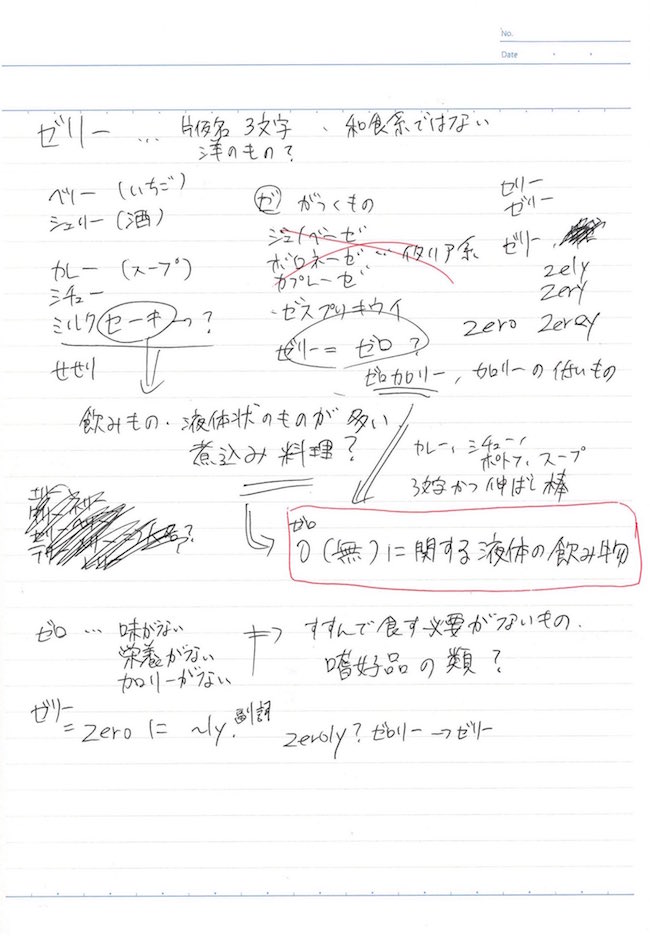 No.
Date
ゼリー … 片仮名 3文字 、和食系ではない
洋のもの?
ベリー (いちご)
シェリー (酒)
カレー (スープ)
シチュー
ミルクセーキ → ?
せせり
ゼ がつくもの
ジェノベーゼ
ボロネーゼ … イタリア系
カプレーゼ
・ゼスプリキウイ
ゼリー = ゼロ ?
ゼロカロリー, カロリーの低いもの
ゼリー
ゼリー
ゼリー
zely
zery
zero zeray
飲みもの・液体状のものが多い
煮込み料理?
カレー, シチュー,
ポトフ, スープ
3文字かつ伸ばし棒
ゼロ
0 (無) に関する液体の飲み物
ゼロ … 味がない
栄養がない
カロリーがない
⇒ すすんで食す必要がないもの.
嗜好品の類?
ゼリー
= zero に ~ly. 副詞
zeroly? ゼロリー → ゼリー